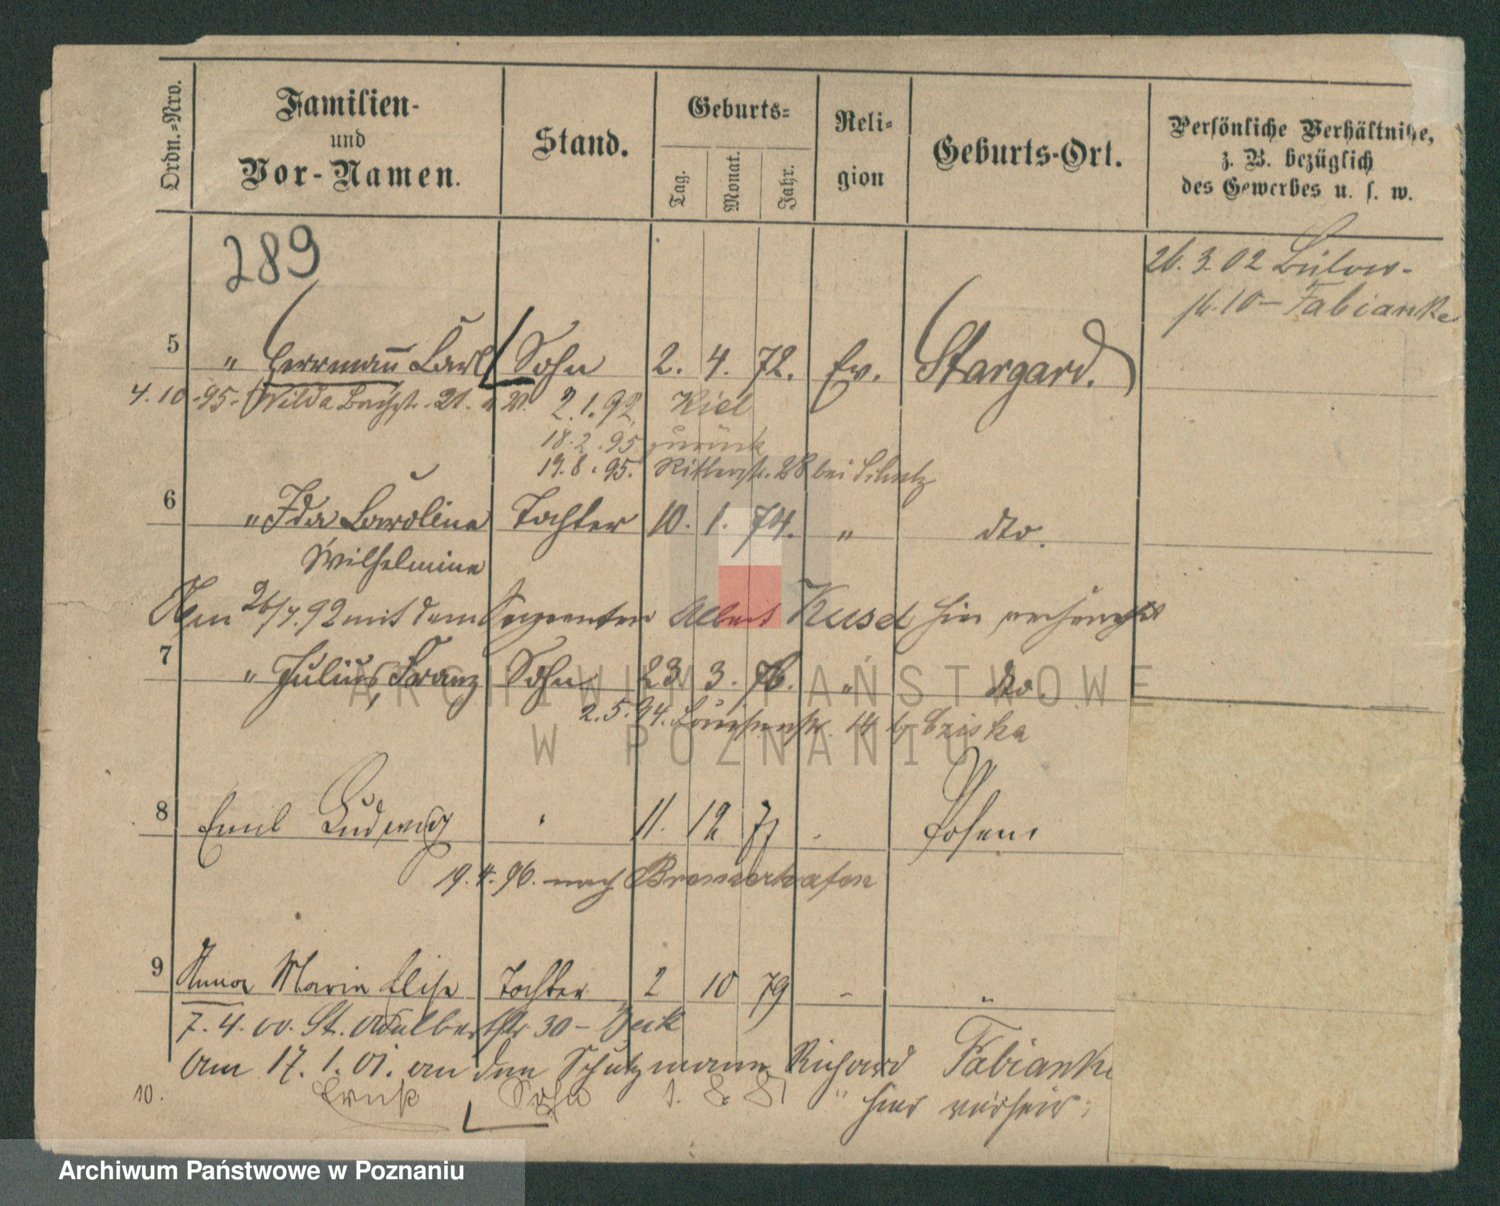 Ordn.-Nro.
Familien-
und
Vor-Namen.
Stand.
Geburts-
Tag.
Monat.
Jahr.
Reli-
gion
Geburts-Ort.
Persönliche Verhältnisse,
z. B. bezüglich
des Gewerbes u. s. w.
289
26. 3. 02 Bülow-
str. 10 – Fabianke
5 " Herrmann Carl Sohn 2. 4. 72. Ev. Stargard.
4. 10. 95. Wilda 21. 2. 1. 92 Kiel
18. 2. 95 zurück
19. 8. 95. Ritterstr. 28 bei
6 " Ida Caroline Tochter 10. 1. 74. " dto.
Wilhelmine
Am 26/7. 92 mit dem Sergeanten Albert Kusel hier
7 " Julius, Franz Sohn 23. 3. 76. " dto.
2. 5. 94. Louisenstr. 14 b/
8 Emil Ludwig " 11. 12 77 " Posen
19. 4. 96. nach Bremerhafen
9 Anna Maria Elise Tochter 2 10 79 " "
7. 4. 00. St. Adalbertstr 30 –
Am 17. 1. 01. an den Schutzmann Richard Fabianke
hier verheir.
10. Sohn 1. 8. 81 "
ARCHIWUM PAŃSTWOWE
W POZNANIU
Archiwum Państwowe w Poznaniu